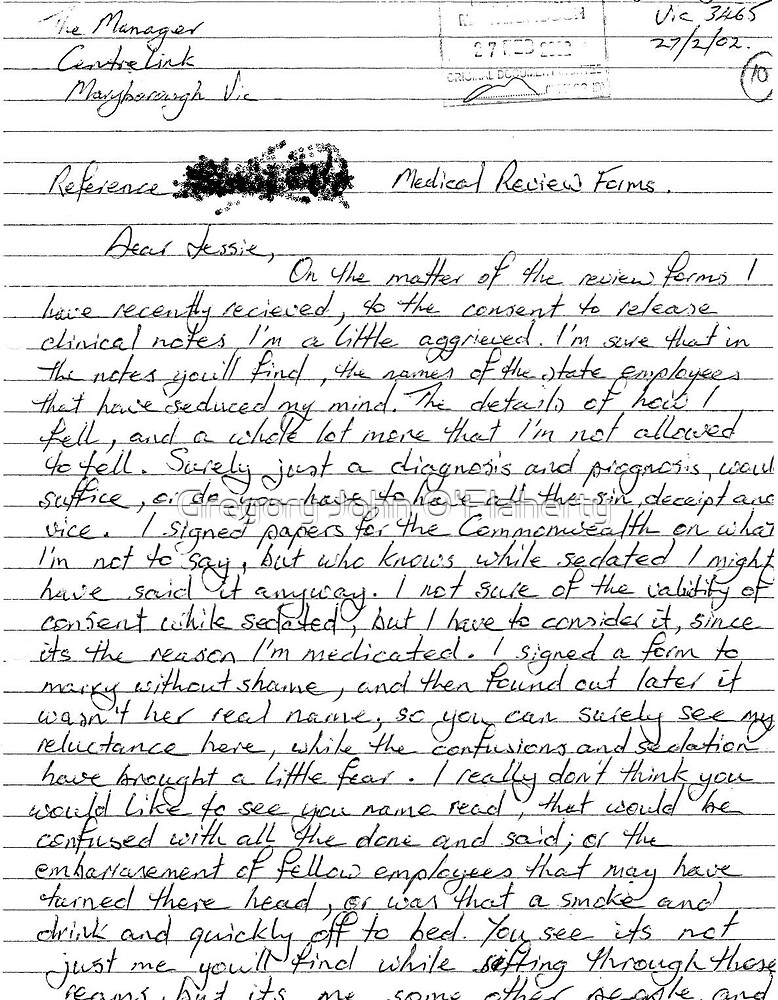 The Manager
Vic 3465
27 FEB 2002
27/2/02.
Centrelink
ORIGINAL DOCUMENT
10
Maryborough Vic
Reference Medical Review Forms.
Dear Jessie,
On the matter of the review forms I
have recently recieved, to the consent to release
clinical notes, I'm a little aggrieved. I'm sure that in
the notes you'll find, the names of the state employees
that have seduced my mind. The details of how I
fell, and a whole lot more that I'm not allowed
to tell. Surely just a diagnosis and prognosis, would
suffice, or do you have to have all the sin, deceipt and
Gregory John O'Flaherty
vice. I signed papers for the Commonwealth on what
I'm not to say, but who knows while sedated I might
have said it anyway. I not sure of the validity of
consent while sedated, but I have to consider it, since
its the reason I'm medicated. I signed a form to
marry without shame, and then found out later it
wasn't her real name, so you can surely see my
reluctance here, while the confusions and sedation
have brought a little fear. I really don't think you
would like to see you name read, that would be
confused with all the done and said; or the
embarrasement of fellow employees that may have
turned there head, or was that a smoke and
drink and quickly off to bed. You see its not
just me you'll find while sifting through these
reams, but its me some other people and